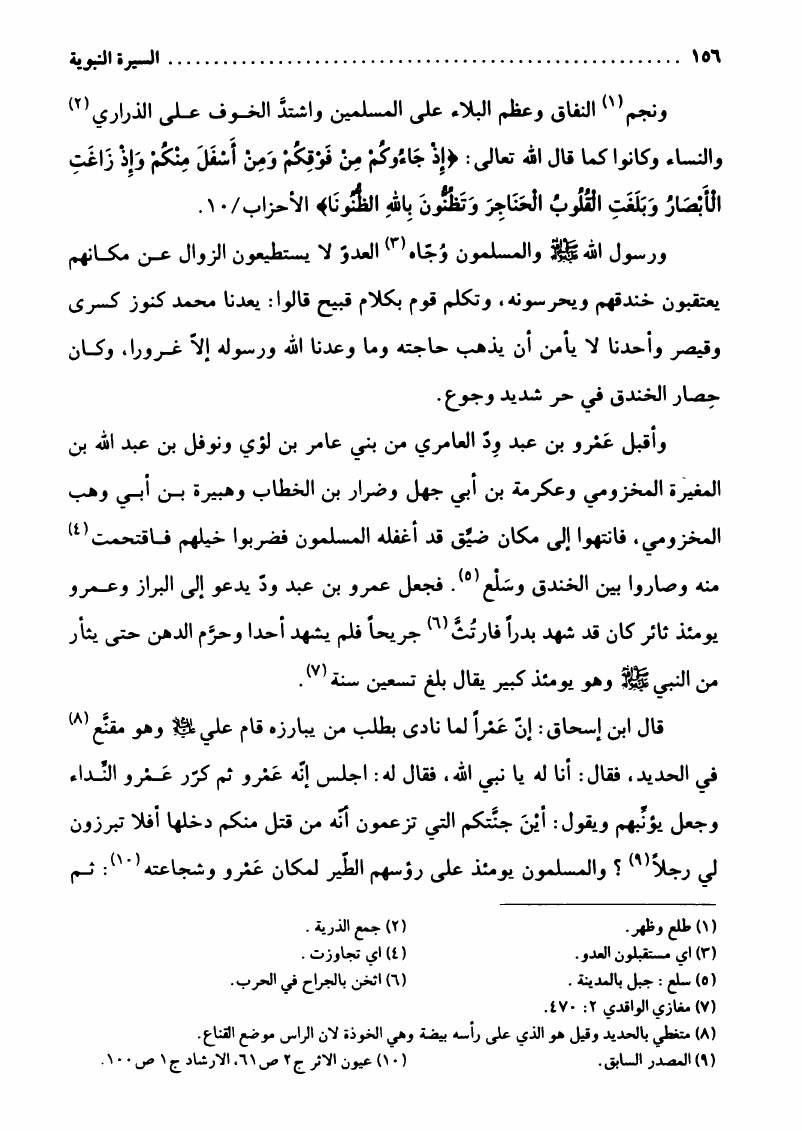 ١٥٦ ........................................................ السيرة النبوية
ونجم(١) النفاق وعظم البلاء على المسلمين واشتدَّ الخوف على الذراري(٢)
والنساء وكانوا كما قال الله تعالى: ﴿إِذْ جَاءُوكُمْ مِنْ فَوْقِكُمْ وَمِنْ أَسْفَلَ مِنْكُمْ وَإِذْ زَاغَتِ
الْأَبْصَارُ وَبَلَغَتِ الْقُلُوبُ الْحَنَاجِرَ وَتَظُنُّونَ بِاللهِ الظُّنُونَا﴾ الأحزاب/١٠.
ورسول الله ﷺ والمسلمون وُجّاه(٣) العدوّ لا يستطيعون الزوال عن مكانهم
يعتقبون خندقهم ويحرسونه، وتكلم قوم بكلام قبيح قالوا: يعدنا محمد كنوز كسرى
وقيصر وأحدنا لا يأمن أن يذهب حاجته وما وعدنا الله ورسوله إلاّ غرورا، وكان
حِصار الخندق في حر شديد وجوع.
وأقبل عَمْرو بن عبد وِدّ العامري من بني عامر بن لؤي ونوفل بن عبد الله بن
المغيرة المخزومي وعكرمة بن أبي جهل وضرار بن الخطاب وهبيرة بن أبي وهب
المخزومي، فانتهوا إلى مكان ضيّق قد أغفله المسلمون فضربوا خيلهم فاقتحمت(٤)
منه وصاروا بين الخندق وسَلْع(٥). فجعل عمرو بن عبد ودّ يدعو إلى البراز وعمرو
يومئذ ثائر كان قد شهد بدراً فارتُثَّ(٦) جريحاً فلم يشهد أحدا وحرَّم الدهن حتى يثأر
من النبي ﷺ وهو يومئذ كبير يقال بلغ تسعين سنة(٧).
قال ابن إسحاق: إنّ عَمْراً لما نادى بطلب من يبارزه قام علي عليه السلام وهو مقنَّع(٨)
في الحديد، فقال: أنا له يا نبي الله، فقال له: اجلس إنّه عَمْرو ثم كرّر عَمْرو النِّداء
وجعل يؤنِّبهم ويقول: أيْنَ جنَّتكم التي تزعمون أنّه من قتل منكم دخلها أفلا تبرزون
لي رجلاً(٩)؟ والمسلمون يومئذ على رؤسهم الطّير لمكان عَمْرو وشجاعته(١٠): ثم
(١) طلع وظهر. (٢) جمع الذرية.
(٣) اي مستقبلون العدو. (٤) اي تجاوزت.
(٥) سلع: جبل بالمدينة. (٦) اثخن بالجراح في الحرب.
(٧) مغازي الواقدي ٢: ٤٧٠.
(٨) متغطي بالحديد وقيل هو الذي على رأسه بيضة وهي الخوذة لان الراس موضع القناع.
(٩) المصدر السابق. (١٠) عيون الاثر ج٢ ص٦١، الارشاد ج١ ص١٠٠.